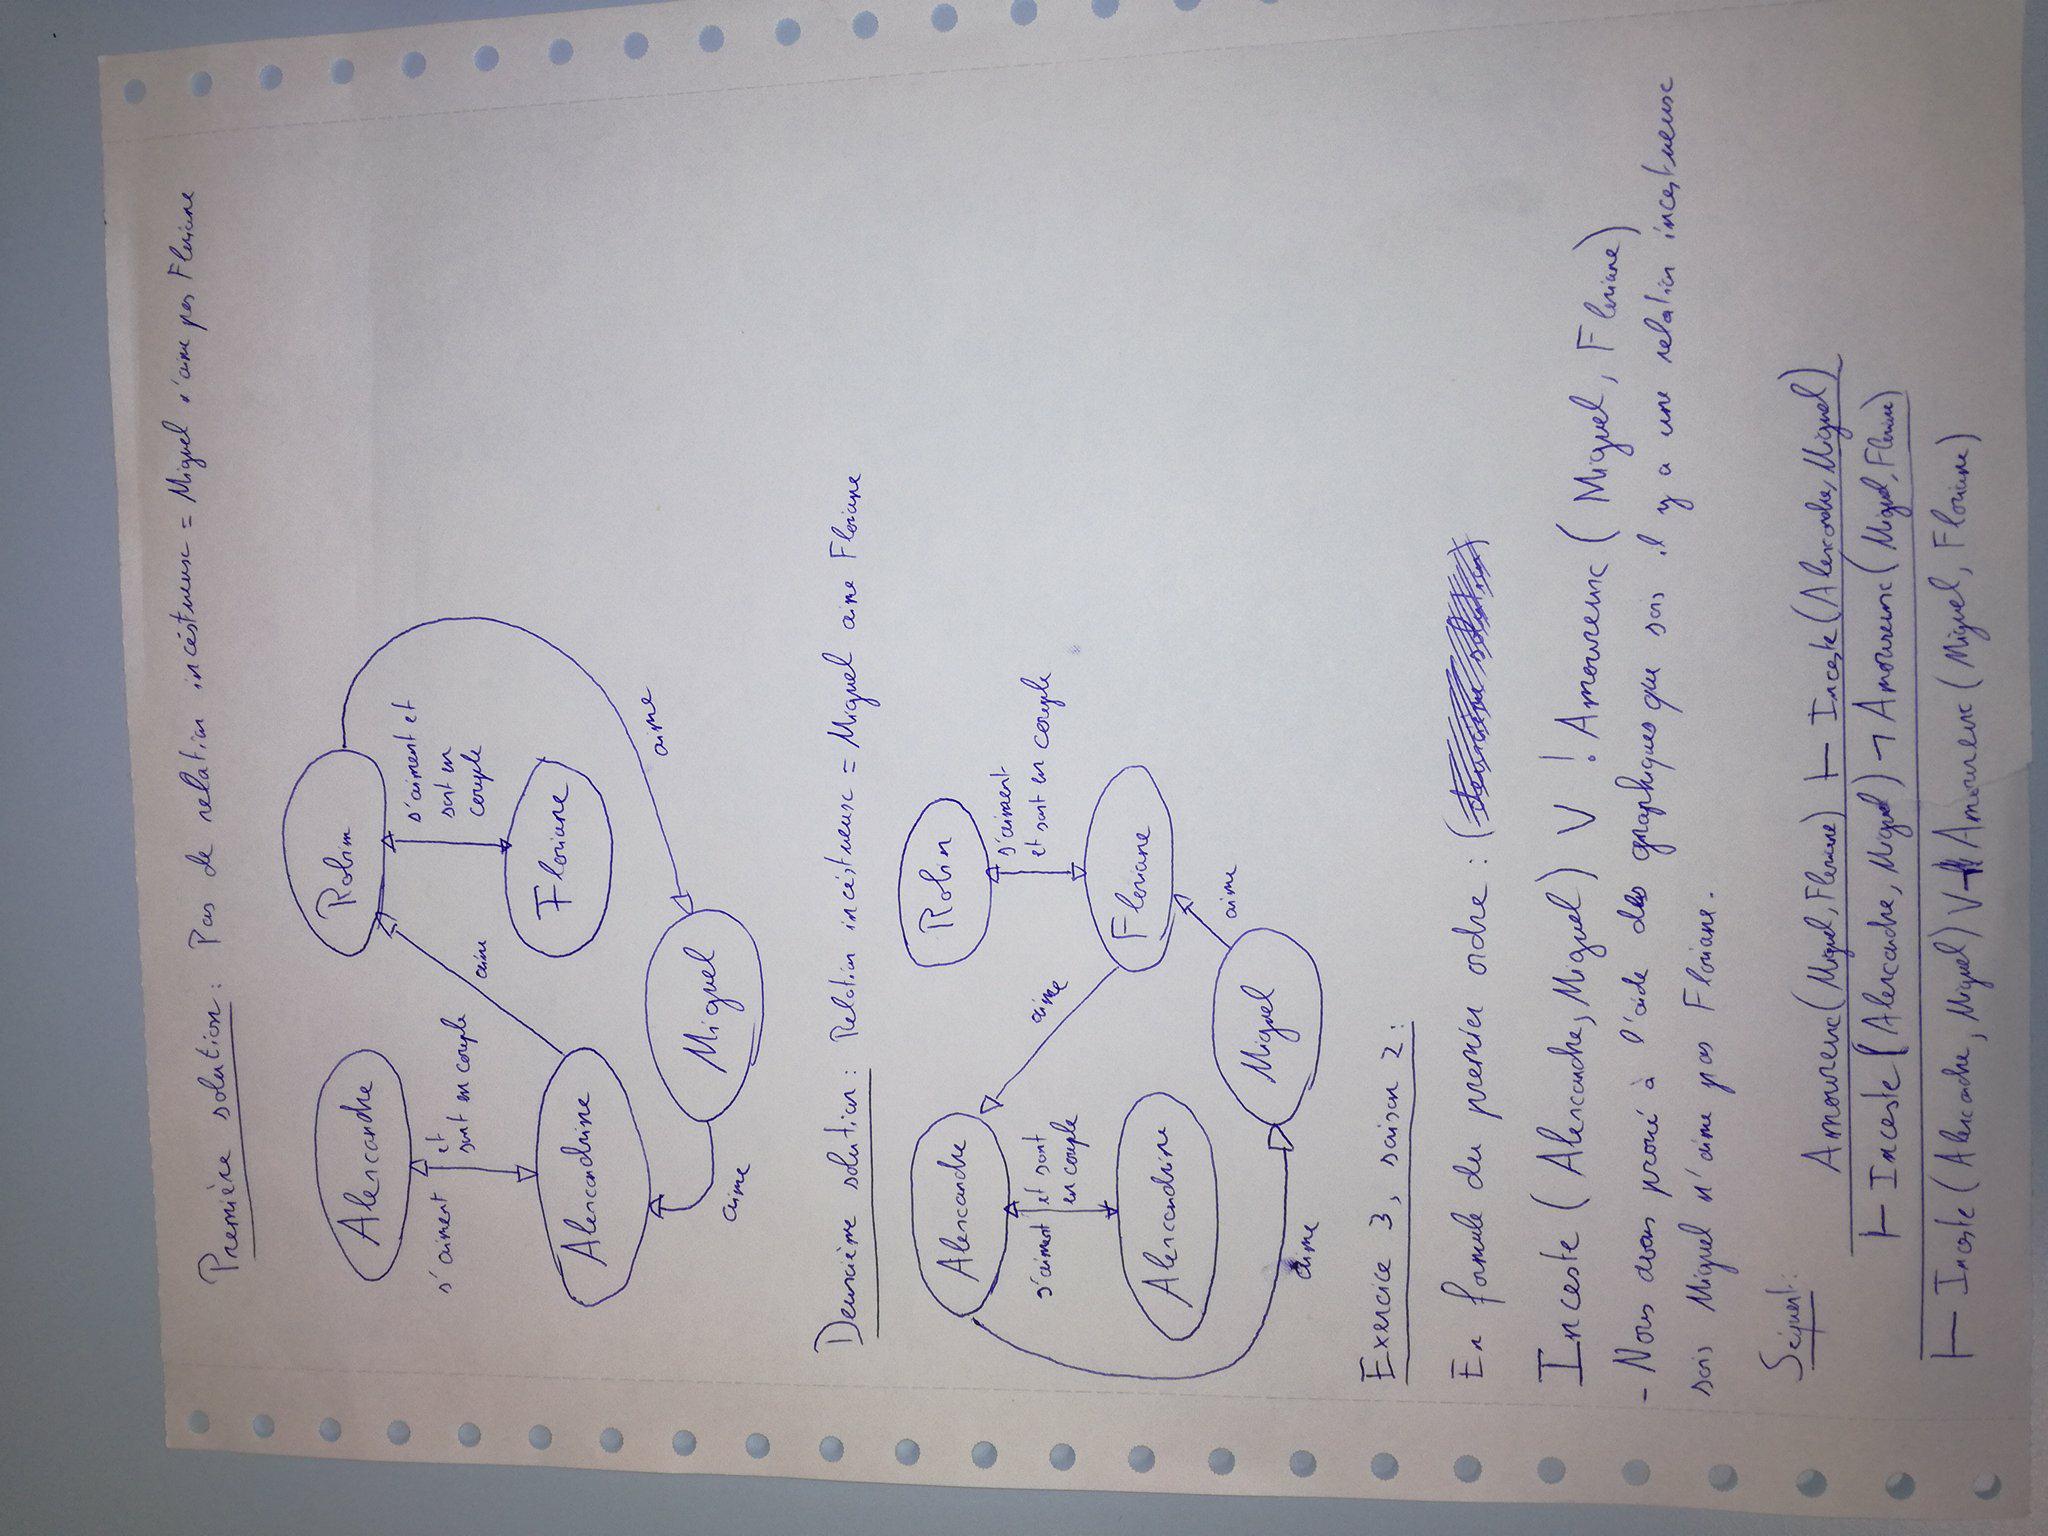 Première solution : Pas de relation incéstueuse = Miguel n'aime pas Floriane
Alexandre
s'aiment et
sont en couple
Alexandrine
aime
Robin
s'aiment et
sont en
couple
Floriane
aime
Miguel
aime
Deuxième solution : Relation incéstueuse = Miguel aime Floriane
Alexandre
s'aiment et sont
en couple
Alexandrine
aime
Robin
s'aiment
et sont en couple
Floriane
aime
Miguel
aime
Exercice 3, saison 2 :
En formule du premier ordre : (
Inceste (Alexandre, Miguel) V ! Amoureux (Miguel, Floriane)
- Nous avons prouvé à l'aide des graphiques que sois il y a une relation incestueuse
sois Miguel n'aime pas Floriane.
Séquent :
Amoureux (Miguel, Floriane) ⊢ Inceste (Alexandre, Miguel)
⊢ Inceste (Alexandre, Miguel) ¬ Amoureux (Miguel, Floriane)
⊢ Inceste (Alexandre, Miguel) V ¬ Amoureux (Miguel, Floriane)